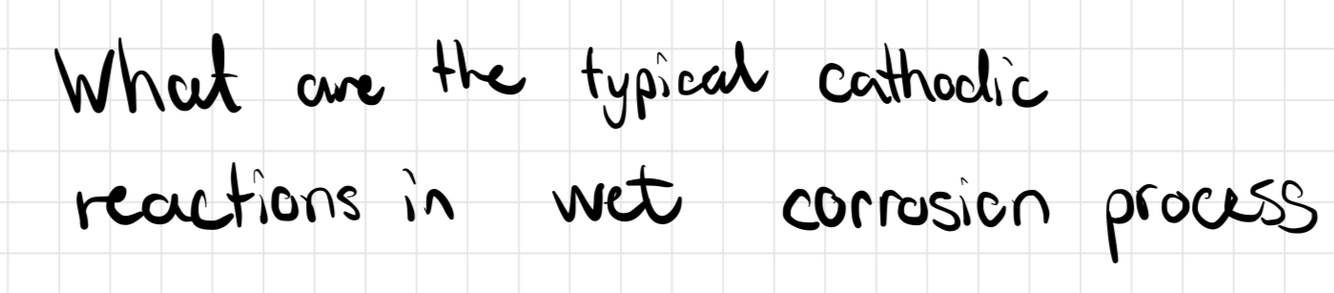 What are the typical cathodic
reactions in wet corrosion process